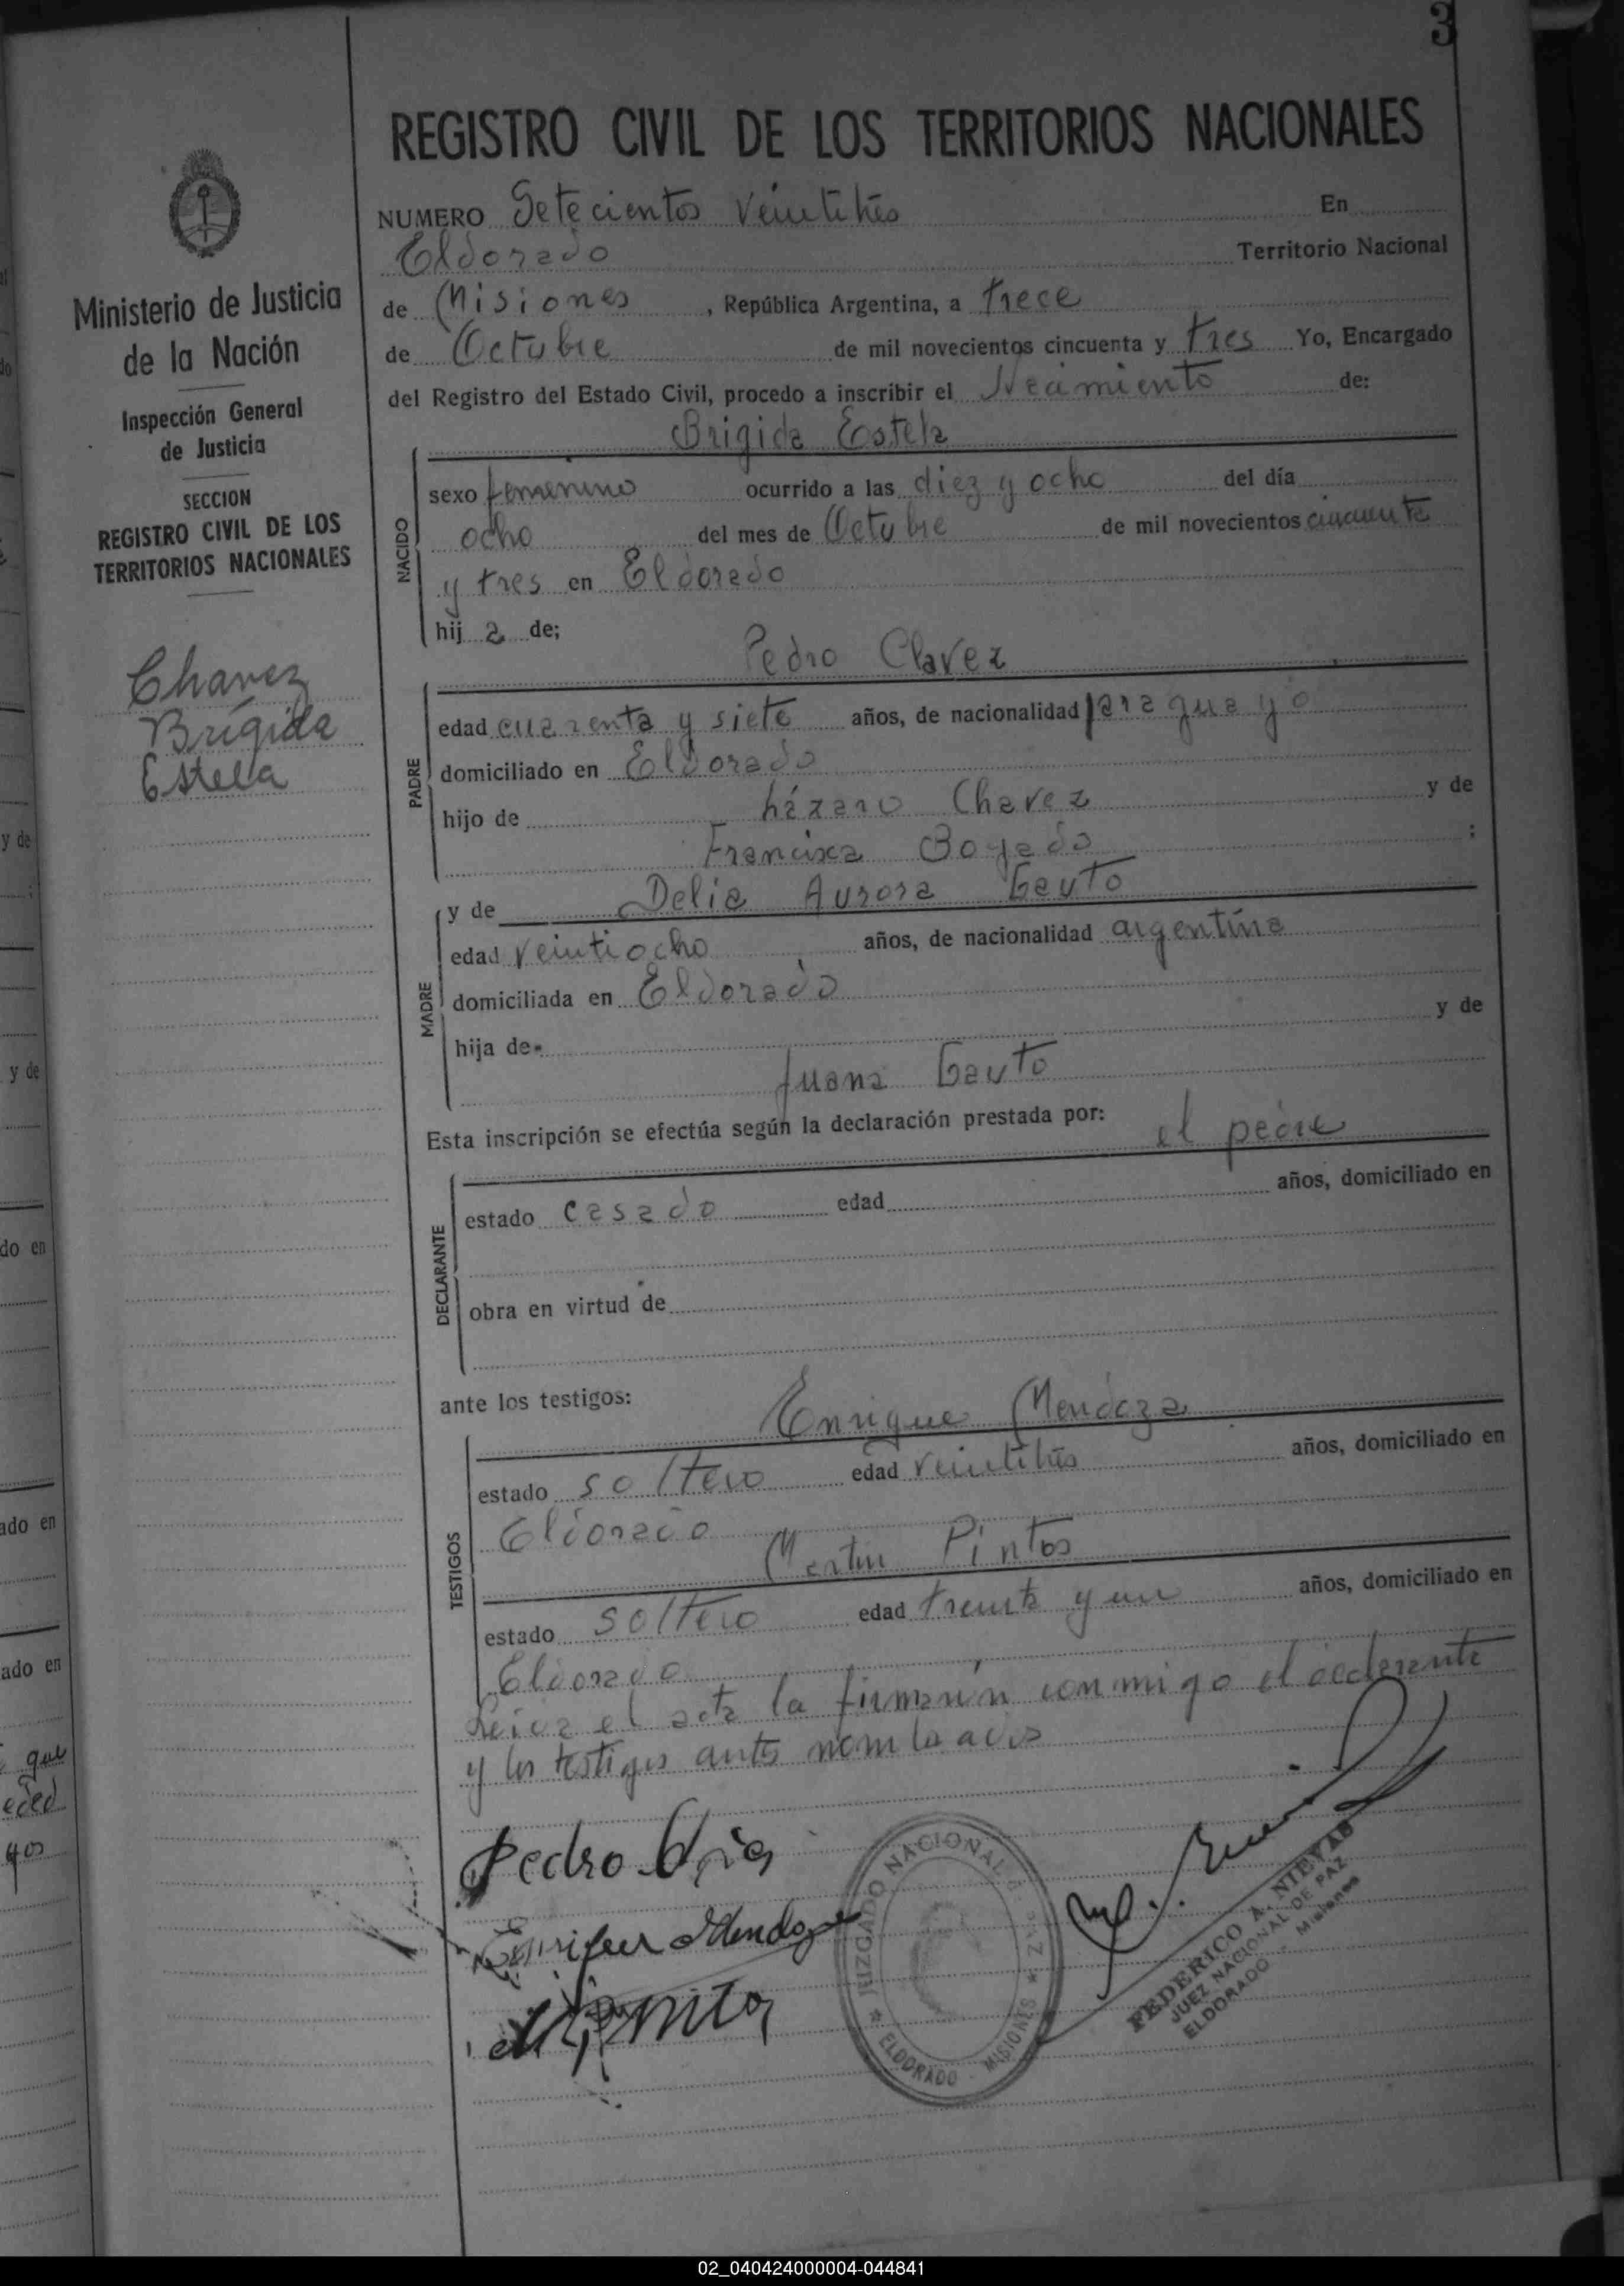 3
REGISTRO CIVIL DE LOS TERRITORIOS NACIONALES
NUMERO Setecientos veintitrés En
Eldorado Territorio Nacional
de Misiones, República Argentina, a trece
de Octubre de mil novecientos cincuenta y tres Yo, Encargado
del Registro del Estado Civil, procedo a inscribir el Nacimiento de:
Brigida Estela
NACIDO
sexo femenino ocurrido a las diez y ocho del día
ocho del mes de Octubre de mil novecientos cincuenta
y tres en Eldorado
hij a de;
Pedro Chavez
PADRE
edad cuarenta y siete años, de nacionalidad paraguayo
domiciliado en Eldorado
hijo de Lázaro Chavez y de
Francisca Bogado ;
MADRE
y de Delia Aurora Gauto
edad veintiocho años, de nacionalidad argentina
domiciliada en Eldorado
hija de- y de
Juana Gauto
Esta inscripción se efectúa según la declaración prestada por: el padre
DECLARANTE
estado casado edad años, domiciliado en
obra en virtud de
ante los testigos: Enrique Mendoza
TESTIGOS
estado soltero edad veintitrés años, domiciliado en
Eldorado
Martin Pintos
estado soltero edad treinta y un años, domiciliado en
Eldorado
Leida el acta la firmarón conmigo el declarante
y los testigos antes nombrados
Pedro
Enrique Mendoza
JUZGADO NACIONAL DE PAZ
* ELDORADO - MISIONES *
FEDERICO A. NIEVAS
JUEZ NACIONAL DE PAZ
ELDORADO - Misiones
Ministerio de Justicia
de la Nación
Inspección General
de Justicia
SECCION
REGISTRO CIVIL DE LOS
TERRITORIOS NACIONALES
Chavez
Brígida
Estella
y de
y de
do en
ado en
ado en
que
edad
gos
02_040424000004-044841